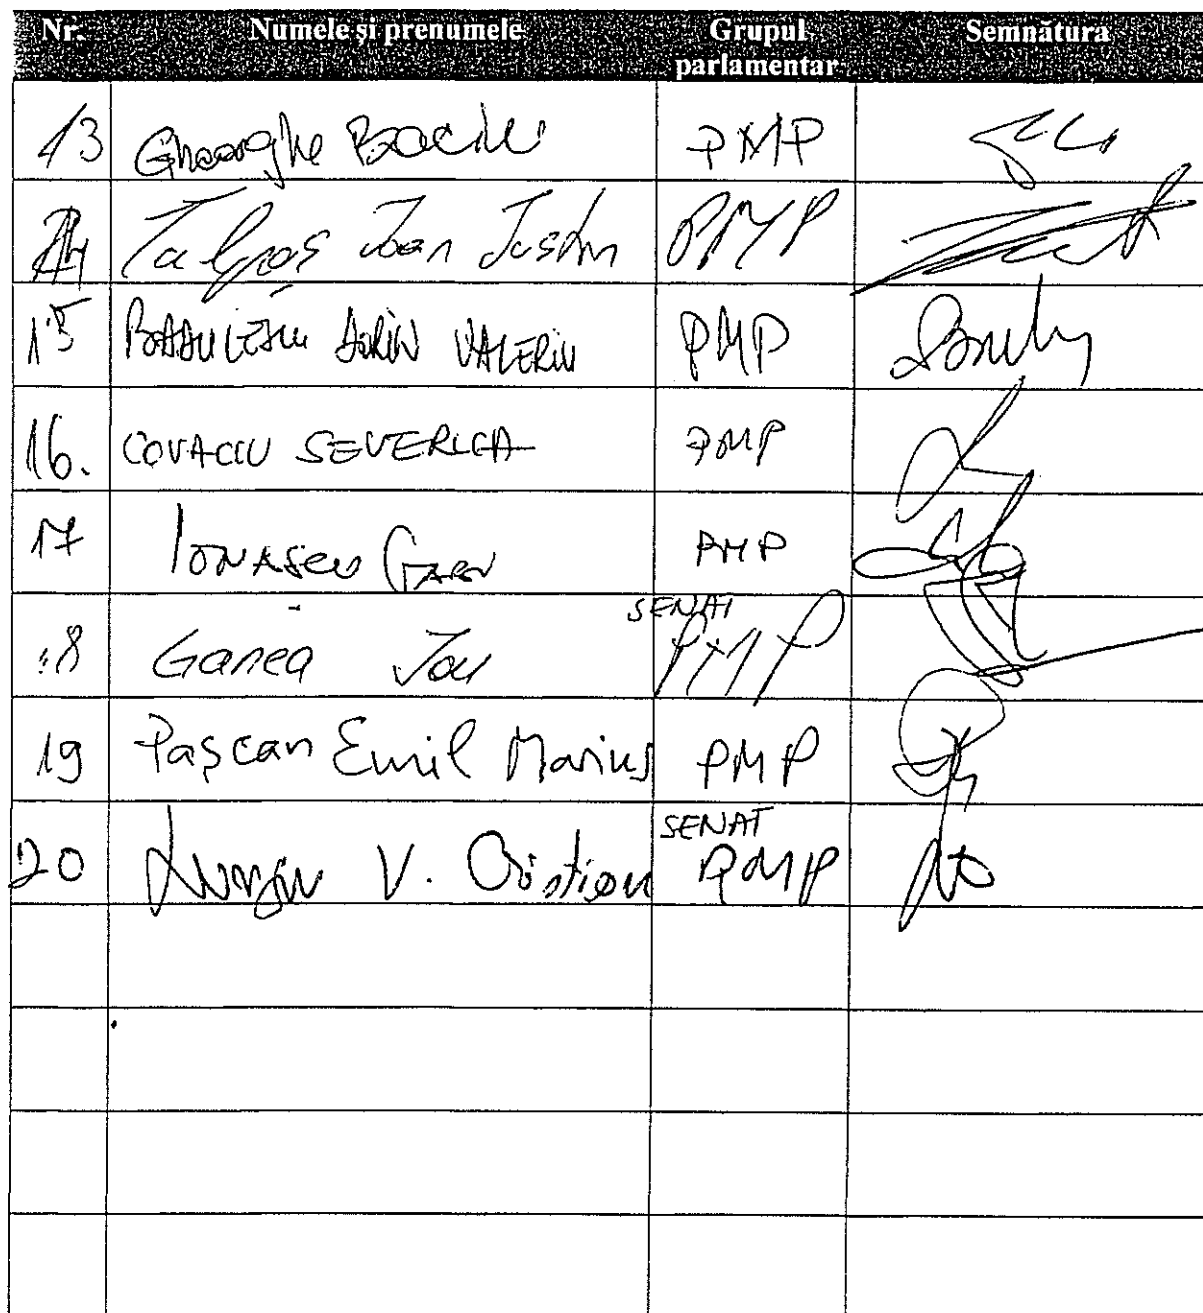 Nr. Numele și prenumele Grupul parlamentar Semnătura
13 Gheorghe Baciu PMP
14 Talpoș Ioan Iustin PMP
15 BĂDULESCU DORIN VALERIU PMP
16. COVACIU SEVERICA PMP
17 IONAȘCU PMP
18 Ganea Ion SENAT PMP
19 Pașcan Emil Marius PMP
20 Lungu V. Cristian SENAT PMP